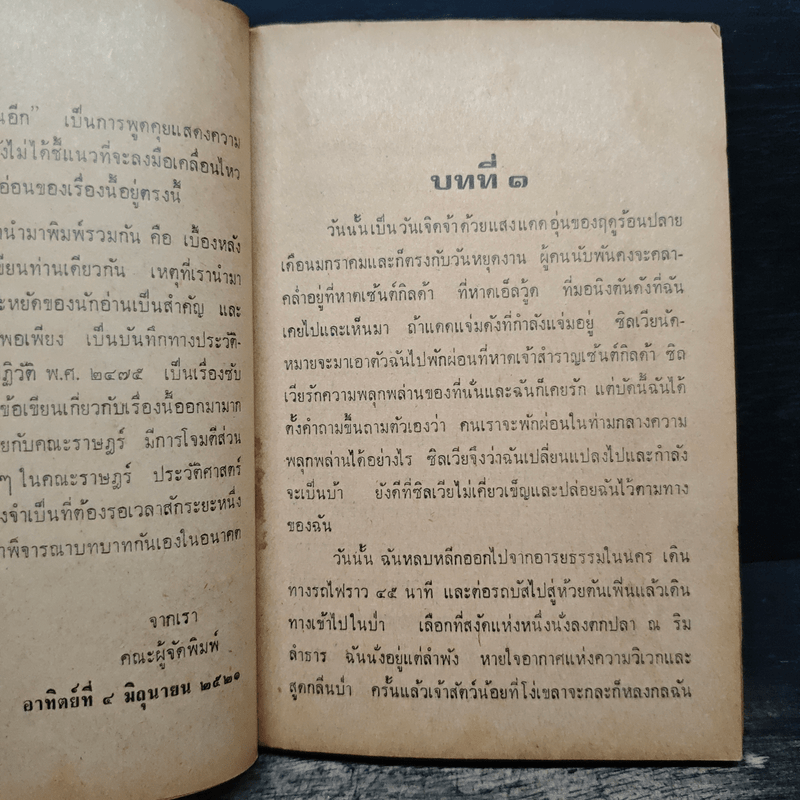 นอีก” เป็นการพูดคุยแสดงความ
ังไม่ได้ชี้แนวที่จะลงมือเคลื่อนไหว
อ่อนของเรื่องนี้อยู่ตรงนี้
งนำมาพิมพ์รวมกัน คือ เบื้องหลัง
ขียนท่านเดียวกัน เหตุที่เรานำมา
ะหยัดของนักอ่านเป็นสำคัญ และ
พอเพียง เป็นบันทึกทางประวัติ-
ฏิวัติ พ.ศ. ๒๔๗๕ เป็นเรื่องซับ
ข้อเขียนเกี่ยวกับเรื่องนี้ออกมามาก
ยกับคณะราษฎร์ มีการโจมตีส่วน
ๆ ในคณะราษฎร์ ประวัติศาสตร์
งจำเป็นที่ต้องรอเวลาสักระยะหนึ่ง
าพิจารณาบทบาทกันเองในอนาคต
จากเรา
คณะผู้จัดพิมพ์
อาทิตย์ที่ ๔ มิถุนายน ๒๕๒๑
บทที่ ๑
วันนั้นเป็นวันเจิดจ้าด้วยแสงแดดอุ่นของฤดูร้อนปลาย
เดือนมกราคมและก็ตรงกับวันหยุดงาน ผู้คนนับพันคงจะคลา-
คล่ำอยู่ที่หาดเซ้นต์กิลด้า ที่หาดเอ็ลวู้ด ที่มอนิงตันดังที่ฉัน
เคยไปและเห็นมา ถ้าแดดแจ่มดังที่กำลังแจ่มอยู่ ซิลเวียนัด-
หมายจะมาเอาตัวฉันไปพักผ่อนที่หาดเจ้าสำราญเซ้นต์กิลด้า ซิล
เวียรักความพลุกพล่านของที่นั่นและฉันก็เคยรัก แต่บัดนี้ฉันได้
ตั้งคำถามขึ้นถามตัวเองว่า คนเราจะพักผ่อนในท่ามกลางความ
พลุกพล่านได้อย่างไร ซิลเวียจึงว่าฉันเปลี่ยนแปลงไปและกำลัง
จะเป็นบ้า ยังดีที่ซิลเวียไม่เคี่ยวเข็ญและปล่อยฉันไว้ตามทาง
ของฉัน
วันนั้น ฉันหลบหลีกออกไปจากอารยธรรมในนคร เดิน
ทางรถไฟราว ๔๕ นาที และต่อรถบัสไปสู่ห้วยตันเพิ่นแล้วเดิน
ทางเข้าไปในป่า เลือกที่สงัดแห่งหนึ่งนั่งลงตกปลา ณ ริม
ลำธาร ฉันนั่งอยู่แต่ลำพัง หายใจอากาศแห่งความวิเวกและ
สูดกลิ่นป่า ครั้นแล้วเจ้าสัตว์น้อยที่โง่เขลาจะกละก็หลงกลฉัน